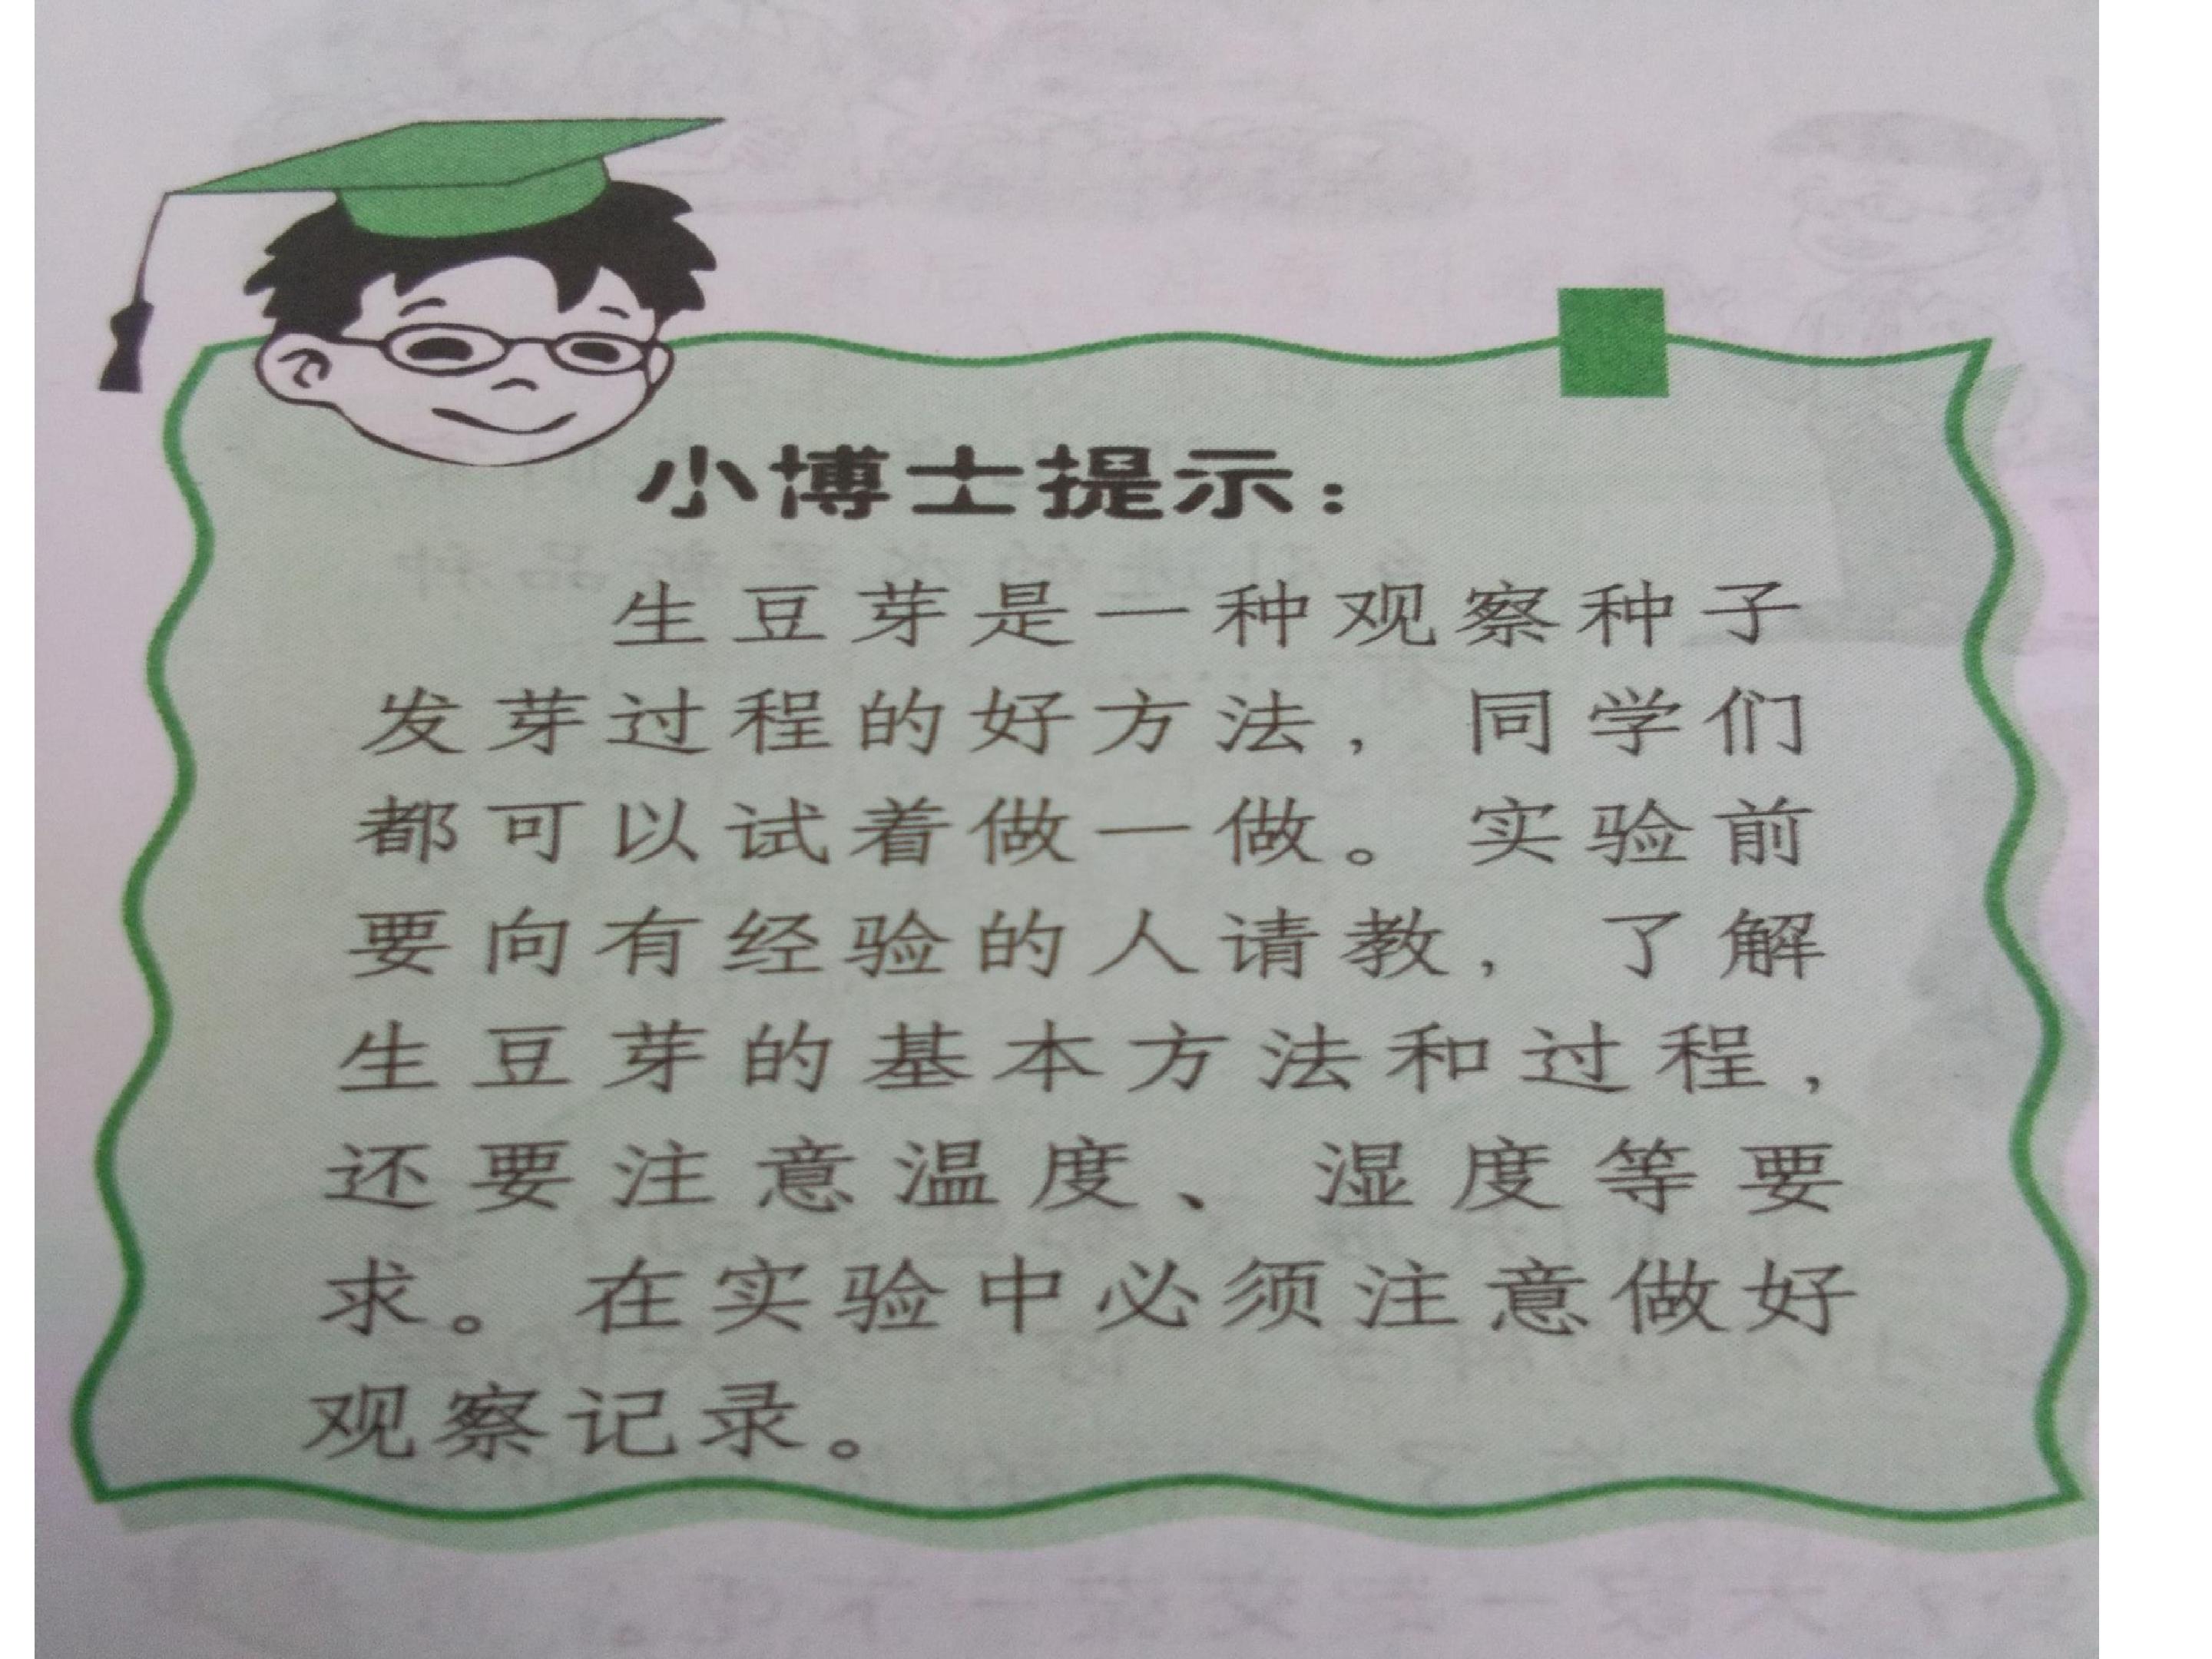 小博士提示：
生豆芽是一种观察种子
发芽过程的好方法，同学们
都可以试着做一做。实验前
要向有经验的人请教，了解
生豆芽的基本方法和过程，
还要注意温度、湿度等要
求。在实验中必须注意做好
观察记录。